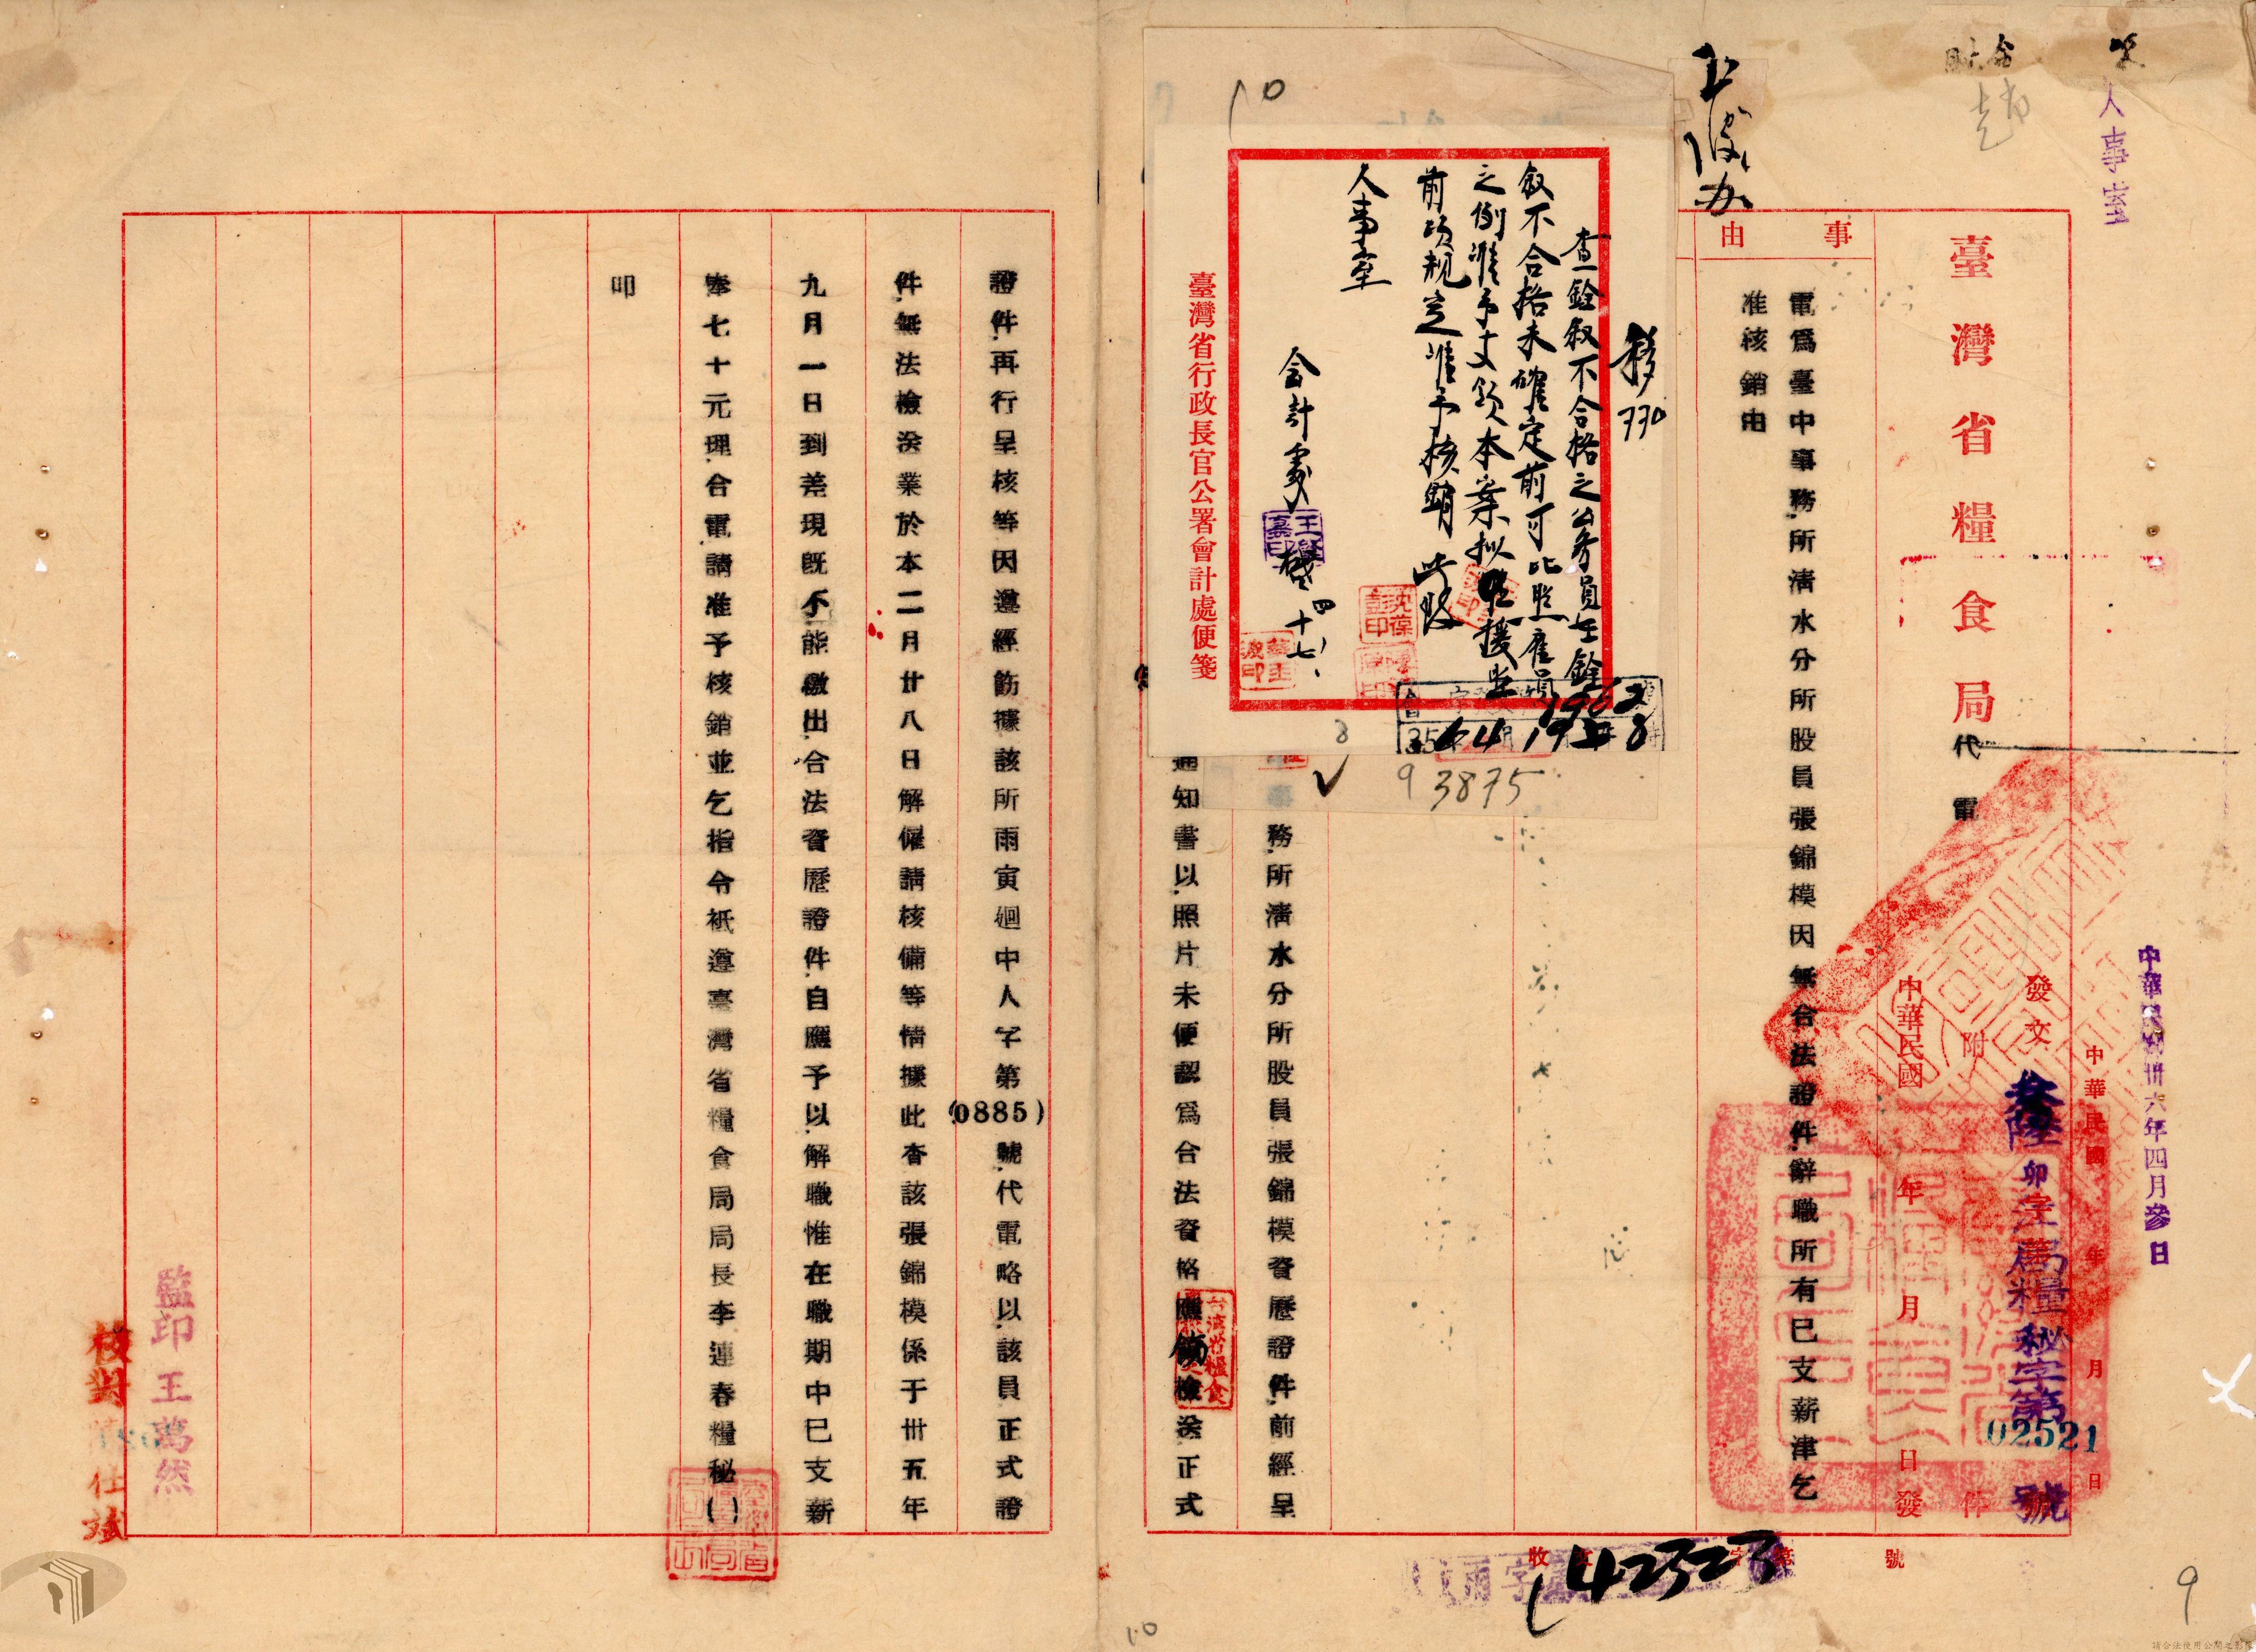 人事室
臺灣省糧食局代電
中華民國卅六年四月參日
中華民國 年 月 日
發文 參陸卯 字 糧秘字第02521號
附件
中華民國 年 月 日發
事由
電爲臺中事務所清水分所股員張錦模因無合法證件辭職所有已支薪津乞
准核銷由
移 330
查銓叙不合格之公務員在銓
叙不合格未確定前可比照雇員
之例准予支領本案擬比援照
前項規定准予核銷此致
人事室
會計處
四十七
臺灣省行政長官公署會計處便箋
1962
3875
務所清水分所股員張錦模資歷證件前經呈
通知書以照片未便認爲合法資格應飭檢送正式
證件再行呈核等因遵經飭據該所雨寅迴中人字第(0885)號代電略以該員正式證
件無法檢送業於本二月廿八日解僱請核備等情據此查該張錦模係于卅五年
九月一日到差現旣不能繳出合法資歷證件自應予以解職惟在職期中已支薪
奉七十元理合電請准予核銷並乞指令祇遵臺灣省糧食局局長李連春糧秘( )
叩
監印 王萬然
校對
收文 字第 號
42323
10
9
10